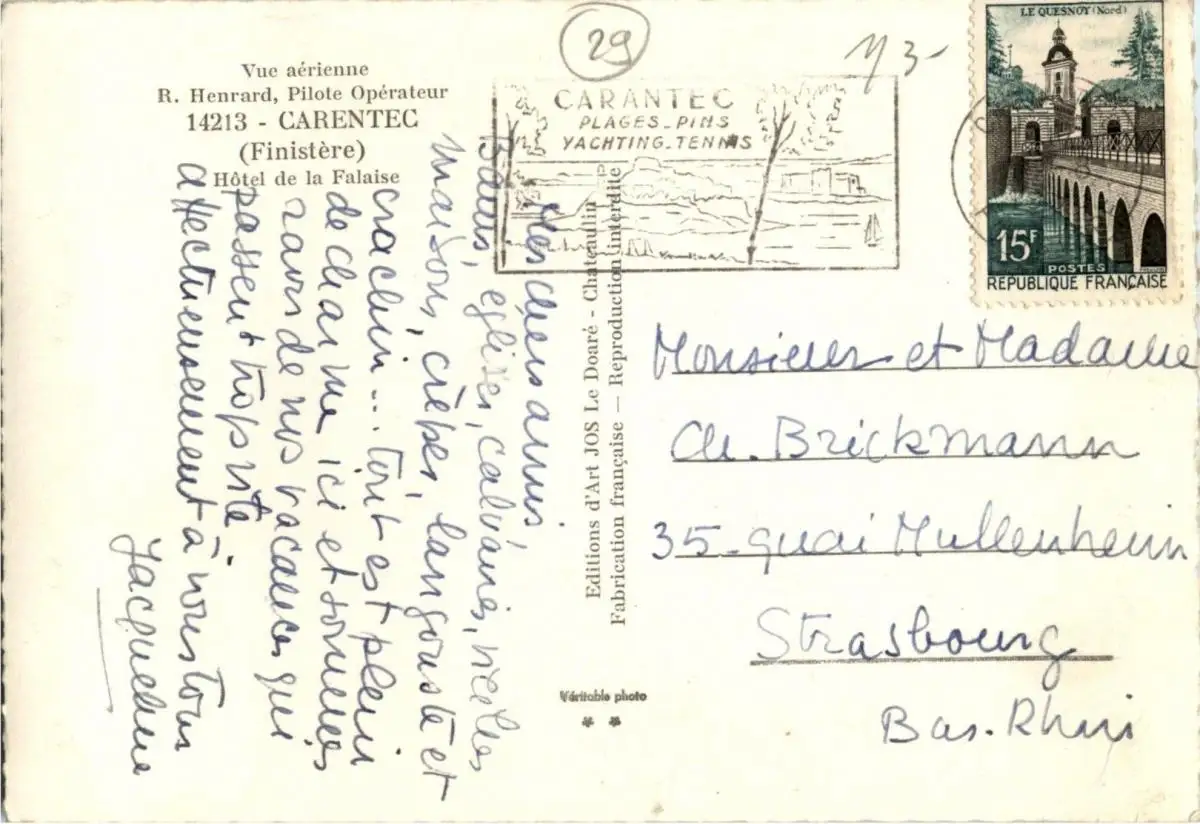 Vue aérienne
R. Henrard, Pilote Opérateur
14213 - CARENTEC
(Finistère)
Hôtel de la Falaise
Mes chers amis,
Bains, églises, calvaires, vieilles
maisons, crêpes, langouste et
crachin... tout est plein
de charme ici et sommes
ravis de nos vacances qui
passent trop vite.
affectueusement à vous tous
Jacqueline
Editions d'Art JOS Le Doaré - Chateaulin
Fabrication française — Reproduction interdite
Véritable photo
29
CARANTEC
PLAGES_PINS
YACHTING_TENNIS
LE QUESNOY (Nord)
15F
POSTES
REPUBLIQUE FRANÇAISE
Monsieur et Madame
Ch. Brickmann
35-quai Mullenheim
Strasbourg
Bas-Rhin